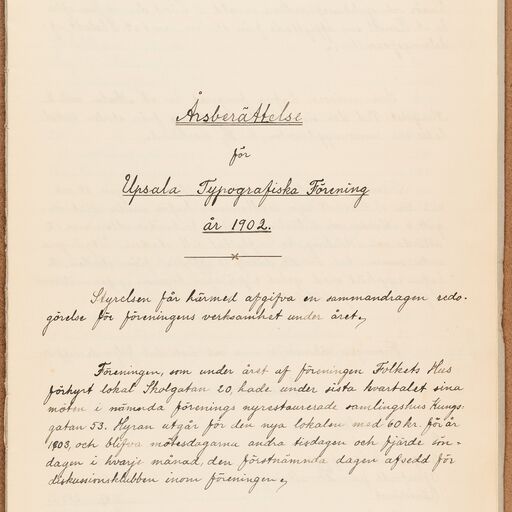 Årsberättelse
för
Upsala Typografiska Förening
år 1902.
Styrelsen får härmed afgifva en sammandragen redo-
görelse för föreningens verksamhet under året.
Föreningen, som under året af föreningen Folkets Hus
förhyrt lokal Skolgatan 20, hade under sista kvartalet sina
möten i nämnda förenings nyrestaurerade samlingshus Kungs-
gatan 53. Hyran utgår för den nya lokalen med 60 kr. för år
1903, och blifva mötesdagarna andra tisdagen och fjärde sön-
dagen i hvarje månad, den förstnämnda dagen afsedd för
diskussionsklubben inom föreningen.